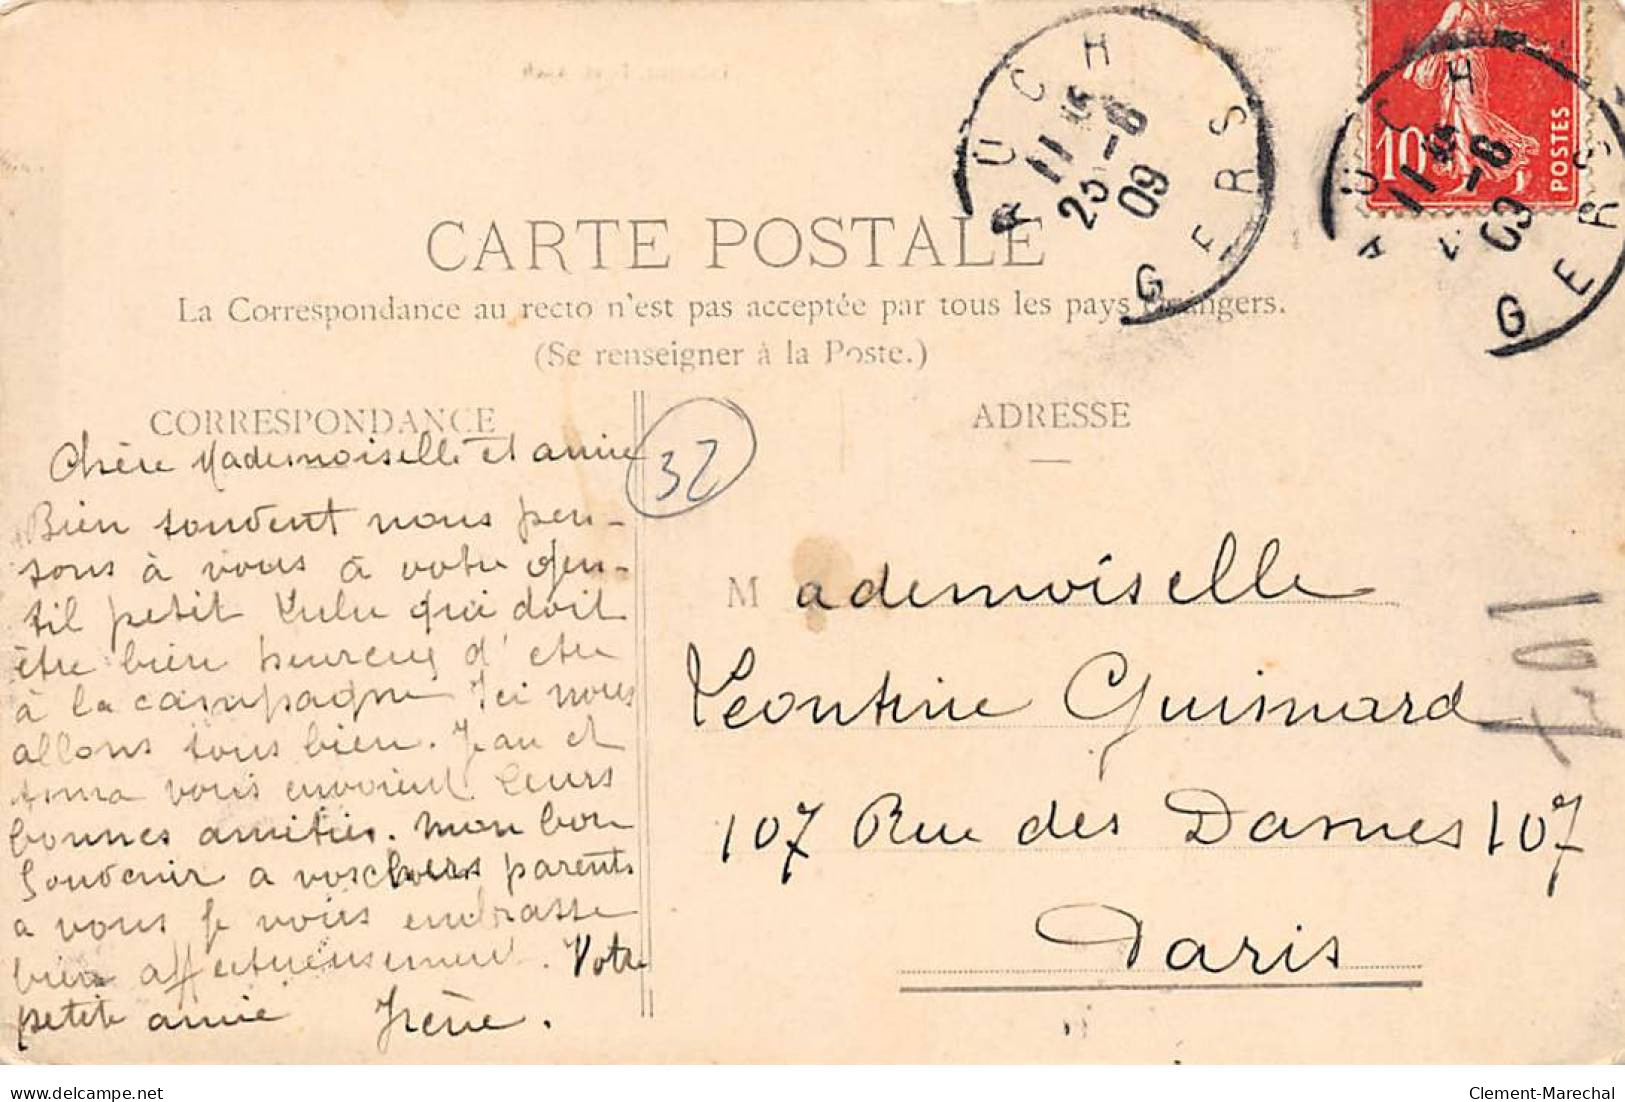 AUCH
11 
25 -6
09
GERS
10
POSTES
AUCH
11 
-6
09
GERS
CARTE POSTALE
La Correspondance au recto n'est pas acceptée par tous les pays étrangers.
(Se renseigner à la Poste.)
CORRESPONDANCE
ADRESSE
32
Chère Mademoiselle et amie
Bien souvent nous pen-
sons à vous à votre gen-
til petit Lulu qui doit
être bien heureux d'être
à la campagne Ici nous
allons tous bien. Jean et
vous envoient leurs
bonnes amitiés. Mon bon
Souvenir a vos chers parents
a vous je vous embrasse
bien affectueusement. Votre
petite amie Irène.
Mademoiselle
Leontine Guismard
107 Rue des Dames 107
Paris
delcampe.net
Clement-Marechal